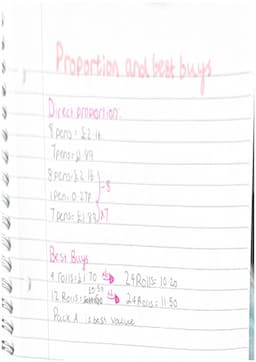 Proportion and best buys
Direct proportion:
8 pens = £2.16
7 pens = £1.89
8 pens = £2.16 ÷8
1 pen = 0.27p
7 pens = £1.89 ×7
Best Buys
4 rolls = £1.70 24 Rolls = 10.20
12 Rolls = 24 Rolls = 11.50
Pack A is best value